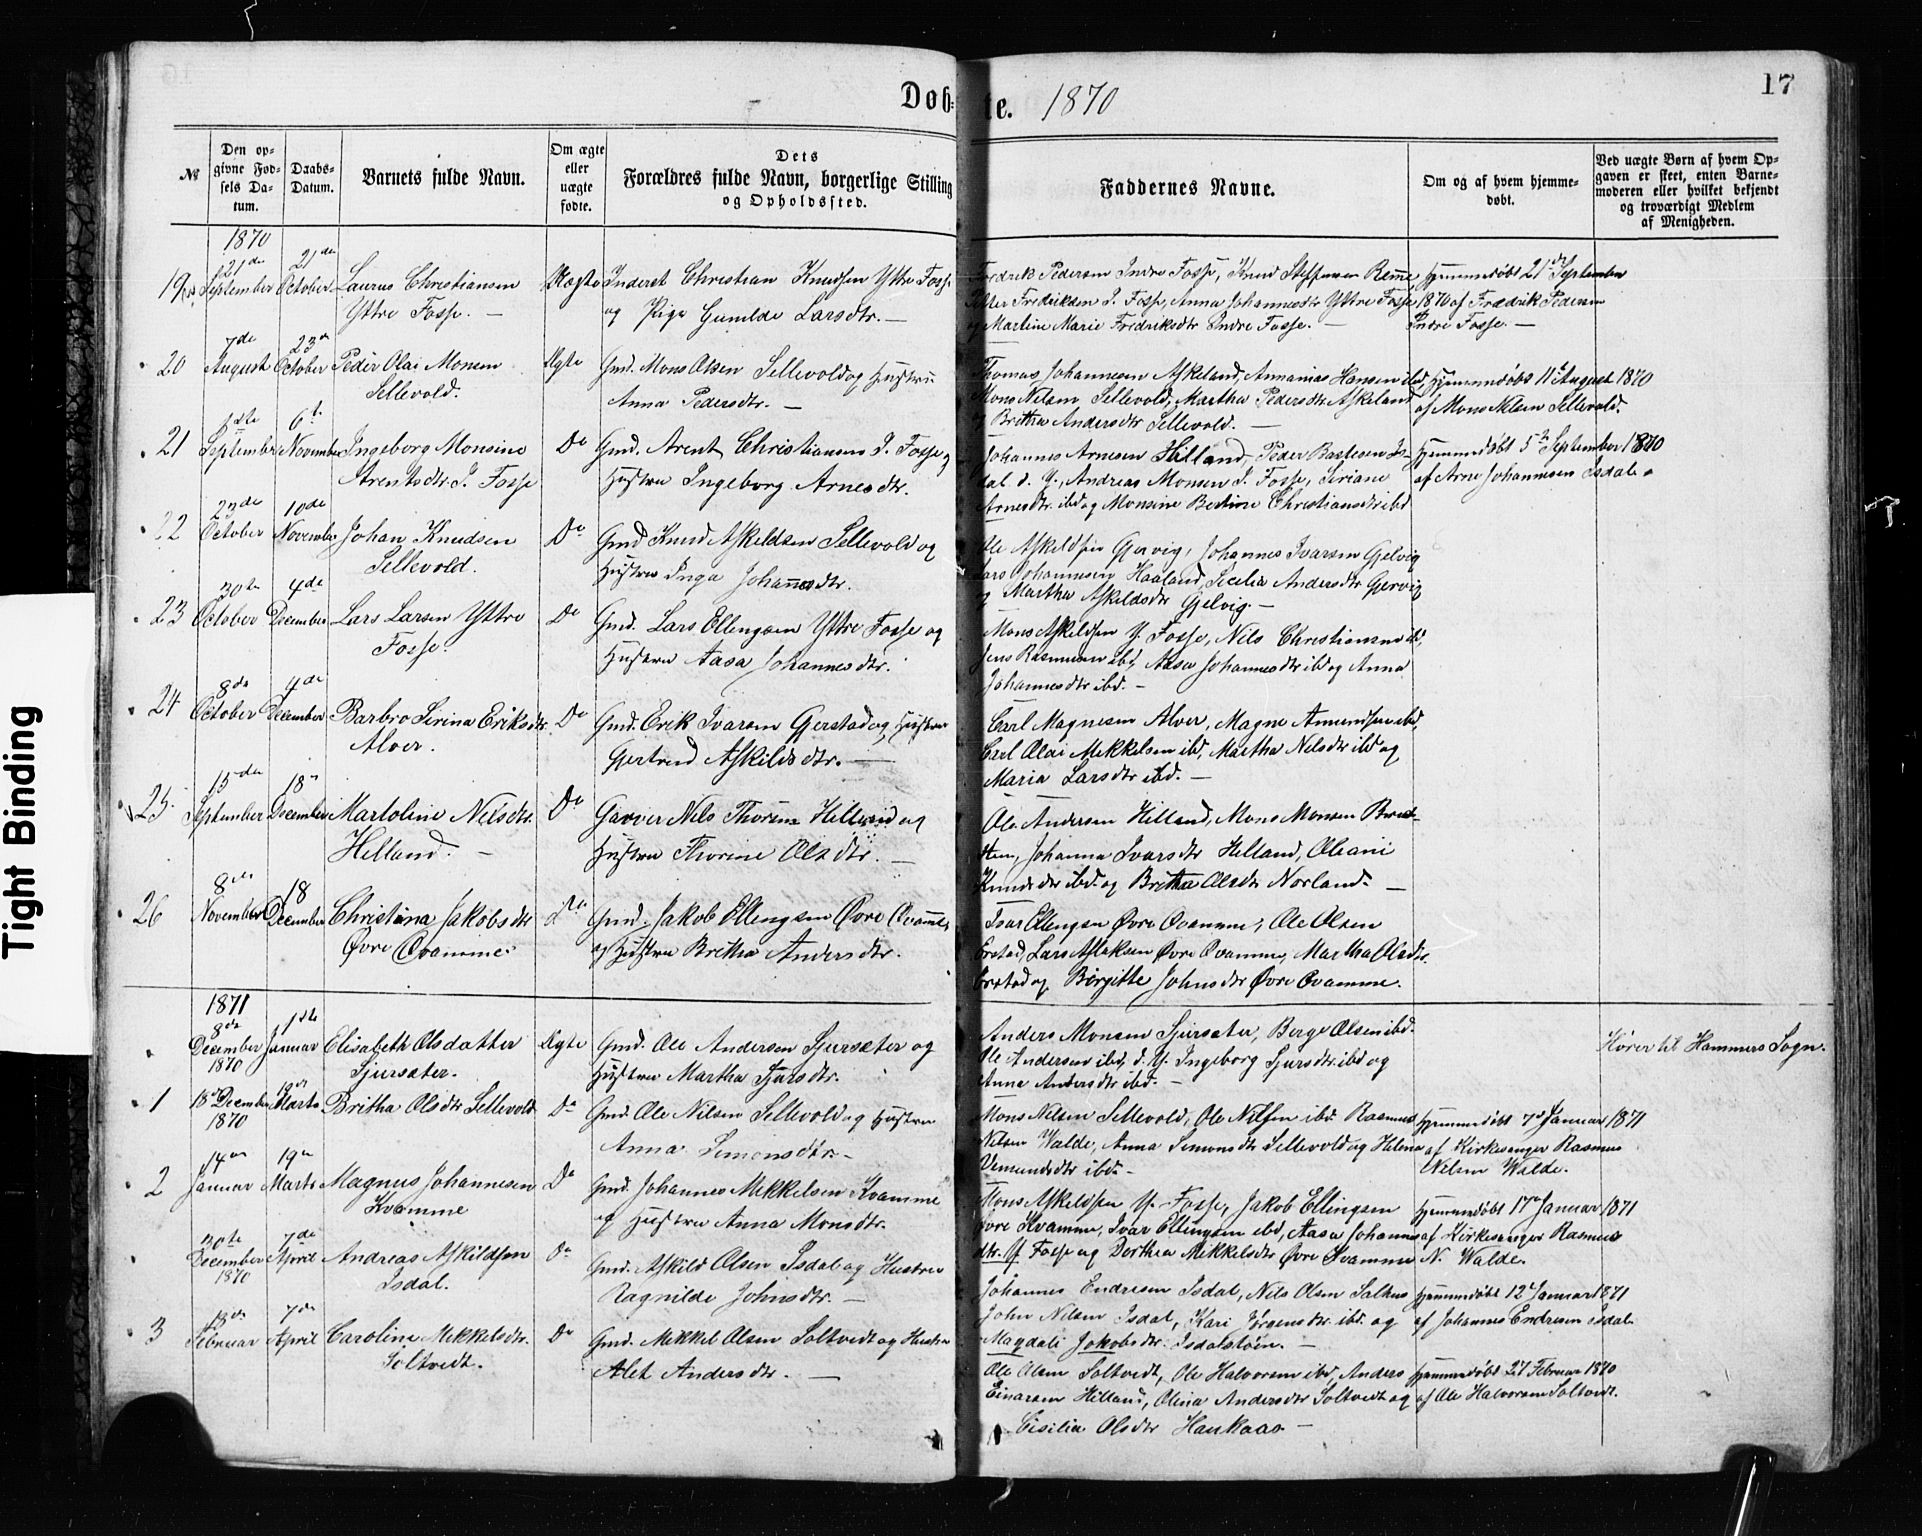 Tight Binding
Døb-
te. 1870
17
№
Den op-
givne Fød-
sels Da-
tum.
Daabs-
Datum.
Barnets fulde Navn.
Om ægte
eller
uægte
fødte.
Dets
Forældres fulde Navn, borgerlige Stilling
og Opholdssted.
Faddernes Navne.
Om og af hvem hjemme-
døbt.
Ved uægte Børn af hvem Op-
gaven er skeet, enten Barne-
moderen eller hvilket bekjendt
og troværdigt Medlem
af Menigheden.
1870
19
21de September
21de October
Laurus Christiansen
Yttre Fosse. —
Uægte
Inderst Christian Knudsen Yttre Fosse
og Pige Gunilde Larsdtr. —
Fredrik Pedersen Indre Fosse, Knud Steffensen Remme
Petter Fredriksen I. Fosse, Anna Johannesdtr Yttre Fosse
og Martine Marie Fredriksdtr Indre Fosse. —
Hjemmedøbt 21de September
1870 af Fredrik Pedersen
Indre Fosse. —
20
7de August
23de October
Peder Olai Monsen
Sellevold.
Ægte
Gmd. Mons Olsen Sellevold og Hustru
Anna Pedersdtr. —
Thomas Johannesen Askeland, Annanias Hansen ibd,
Mons Nilsen Sellevold, Martha Pedersdtr Askeland
og Britha Andersdtr Sellevold. —
Hjemmedøbt 11te August 1870
af Mons Nilsen Sellevold.
21
1ste September
6te November
Ingeborg Monsine
Arentsdtr. I. Fosse
Do
Gmd. Arent Christiansen I. Fosse og
Hustru Ingeborg Arnesdtr.
Johannes Arnesen Hilland, Peder Bastesen Is-
dal d. Y., Andreas Monsen I. Fosse, Seriane
Arnesdtr ibd og Monsine Bertine Christiansdtr ibd
Hjemmedøbt 5te September 1870
af Arne Johannesen Isdal.
22
23de October
10de November
Johan Knudsen
Sellevold.
Do
Gmd Knud Askildsen Sellevold og
Hustru Inga Johannesdtr.
Ole Askildsen Gjervig, Johannes Ivarsen Gjelvig
Lars Johannesen Haaland, Cecilia Andersdtr Gjervig
og Martha Askildsdtr Gjelvig. —
23
30te October
4de December
Lars Larsen Yttre
Fosse.
Do
Gmd. Lars Ellingsen Yttre Fosse og
Hustru Aasa Johannesdtr.
Mons Askildsen Y. Fosse, Nils Christiansen ibd
Jens Rasmusen ibd, Aasa Johannesdtr ibd og Anna
Johannesdtr ibd. —
24
8de October
4de December
Barbro Serina Eriksdtr
Alver.
Do
Gmd. Erik Ivarsen Gjerstad og Hustru
Gjertrud Askildsdtr. —
Carl Magnesen Alver, Magne Amundsen ibd,
Carl Olai Mikkelsen ibd, Martha Nilsdtr ibd og
Maria Larsdtr ibd. —
25.
15de September
18de December
Martoline Nilsdtr.
Helland. —
Do
Garver Nils Thorsen Hilland og
Hustru Thorine Olsdtr. —
Ole Andersen Hilland, Mons Monsen
Johanna Ivarsdtr Helland, Oleani
Knudsdtr ibd og Britha Olsdtr Norland. —
26
8de November
18 December
Christina Jakobsdtr
Øvre Qvamme.
Do
Gmd. Jakob Ellingsen Øvre Qvamme
og Hustru Britha Andersdtr.
Ivar Ellingsen Øvre Qvamme, Ole Olsen
Lars Aslaksen Øvre Qvamme, Martha Olsdtr.
og Birgitte Johnsdtr Øvre Qvamme.
1871
8de December 1870
1ste Januar
Elisabeth Olsdatter
Sjursæter.
Ægte
Gmd. Ole Andersen Sjursæter og
Hustru Martha Sjursdtr.
Anders Monsen Sjursæter, Berge Olsen ibd.
Ole Andersen ibd, d. Y. Ingeborg Sjursdtr ibd og
Anna Andersdtr ibd. —
Hører til Hammers Sogn.
1
18de December 1870
19de Marts
Britha Olsdtr Sellevold
Do
Gmd. Ole Nilsen Sellevold og Hustru
Anna Simonsdtr. —
Mons Nilsen Sellevold, Ole Nilsen ibd. Rasmus
Nilsen Walde, Anna Simonsdtr Sellevold og Helena
Vemundsdtr ibd. —
Hjemmedøbt 7de Januar 1871
af Kirkesanger Rasmus
Nilsen Walde.
2
14de Januar
19de Marts
Magnus Johannesen
Kvamme
Do
Gmd. Johannes Mikkelsen Kvamme
og Hustru Anna Monsdtr.
Mons Askildsen Y. Fosse, Jakob Ellingsen
Øvre Kvamme, Ivar Ellingsen ibd, Aasa Johannes-
dtr. Y. Fosse og Dorthea Mikkelsdtr Øvre Kvamme
Hjemmedøbt 17de Januar 1871
af Kirkesanger Rasmus
N. Walde.
30te December 1870
7de April
Andreas Askildsen
Isdal.
Do
Gmd. Askild Olsen Isdal og Hustru
Ragnilde Johnsdtr. —
Johannes Endresen Isdal, Nils Olsen Salhus
John Nilsen Isdal, Kari Jørgensdtr. ibd. og
Magdali Jakobsdtr. Isdalstøen. —
Hjemmedøbt 12te Januar 1871
af Johannes Endresen Isdal
3
18de Februar
7de April
Caroline Mikkelsdtr.
Soltvedt.
Do
Gmd. Mikkel Olsen Soltvedt og Hustru
Alet Andersdtr. —
Ole Olsen Soltvedt, Ole Halvorsen ibd, Anders
Einarsen Hilland, Olina Andersdtr Soltvedt og
Cicilia Olsdtr Haukaas —
Hjemmedøbt 27 Februar 1870
af Ole Halvorsen Soltvedt.